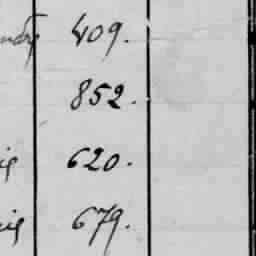 409.
852.
620.
679.